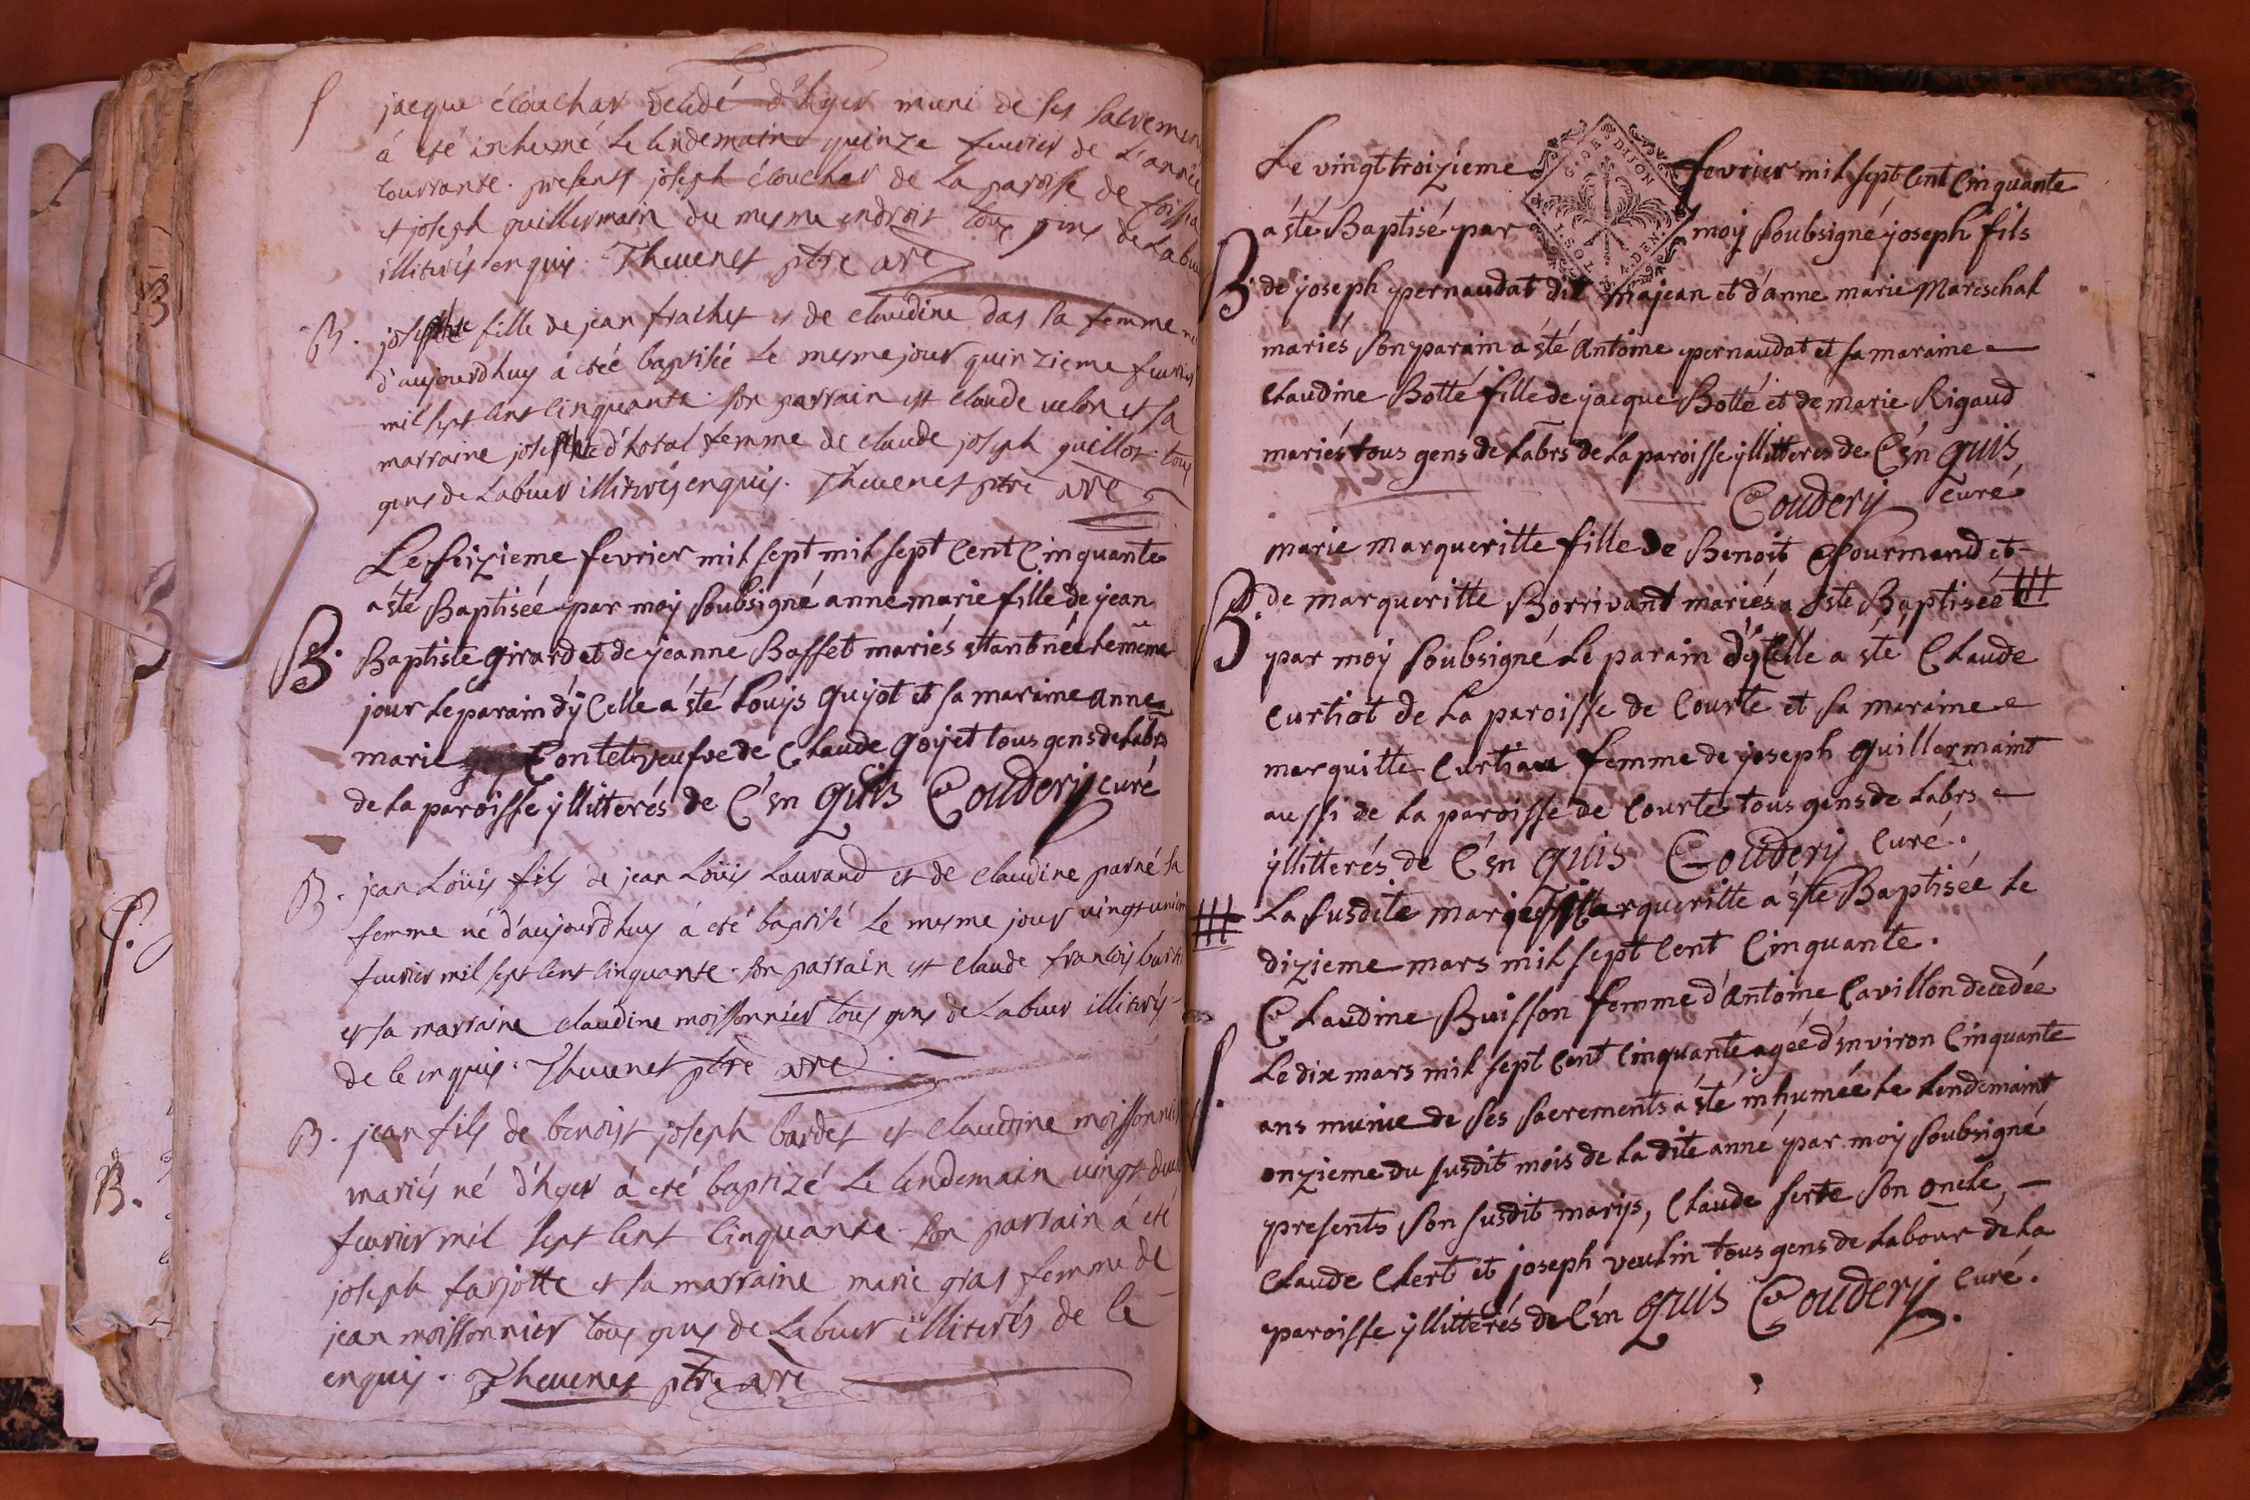 S jacque élouchar decedé d'hyer muni de ses sacremen
á eté inhumé le lendemain quinze feurier de l'année
courrante. presents joseph élouchar de la paroisse de
et joseph guillermain du mesme endroit tous gens de labeur
illiterés enquis. Theuenet ptre
B. josephte fille de jean frachet et de claudine das sa femme
d'aujourdhuy á eteé baptisée le mesme jour quinzieme feurier
mil sept cent cinquante. son parrain est claude uelon et sa
marraine josephte d'hotal femme de claude joseph guillot. tous
gens de labeur illiterés enquis. Theuenet ptre
Le seizieme fevrier mil sept mil sept Cent Cinquante
a ste Baptisée par moy soubsigné anne marie fille de jean
B. Baptiste girard et de jeanne Basset mariés stant née le même
jour le parain d'yCelle a sté Louys guyot et sa maraine anne
marie Contet veufve de Claude goyet tous gens de Labrs
de la paroisse yllitterés de C'en quis Coudery curé
B. jean Loüis fils de jean Loüis Laurand et de claudine parné sa
femme né d'aujourdhuy á eté baptisé le mesme jour uingt unieme
feurier mil sept cent cinquante. son parrain est claude françois
et sa marraine claudine moissonnier tous gens de labeur illiterés
de ce enquis. Theuenet ptre
B. jean fils de benoist joseph bardet et claudine moissonnier
mariés né d'hyer á eté baptizé le lendemain uingt deux
feurier mil sept cent cinquante. son parrain á eté
joseph farjotte et sa marraine marie gras femme de
jean moissonnier tous gens de labeur illiterés de ce
enquis. Theuenet ptre
Le vingt troizieme fevrier mil sept Cent Cinquante
G.DE DIJON
a sté Baptisé par moy soubsigné joseph fils
B. de joseph pernaudat dit majean et d'anne marie Mareschal
mariés son parain a sté Antoine pernaudat et sa maraine
Claudine Botté fille de jacque Botté et de marie Rigaud
mariés tous gens de Labrs de la paroisse yllitterés de C'en quis
Coudery curé
marie margueritte fille de Benoit gourmand et
B. de margueritte Borrivant mariés a sté Baptisée
par moy soubsigné le parain d'yCelle a sté Claude
Curtiot de la paroisse de Courte et sa maraine
marguitte Curtiau femme de joseph guillermaint
aussi de la paroisse de Courtes tous gens de Labrs
yllitterés de C'en quis Coudery Curé.
La susdite marie Margueritte a sté Baptisée le
dizieme mars mil sept Cent Cinquante.
Claudine Buisson femme d'Antoine Cavillon decedée
Le dix mars mil sept Cent Cinquante agée d'environ Cinquante
S. ans munie de ses sacrements a sté inhumée le lendemaint
onzieme du susdit mois de la dite anné par moy soubsigné
presents son susdit marys, Claude serte son oncle,
Claude Clert et joseph veulin tous gens de labour de la
paroisse yllitterés de C'en quis Coudery Curé.